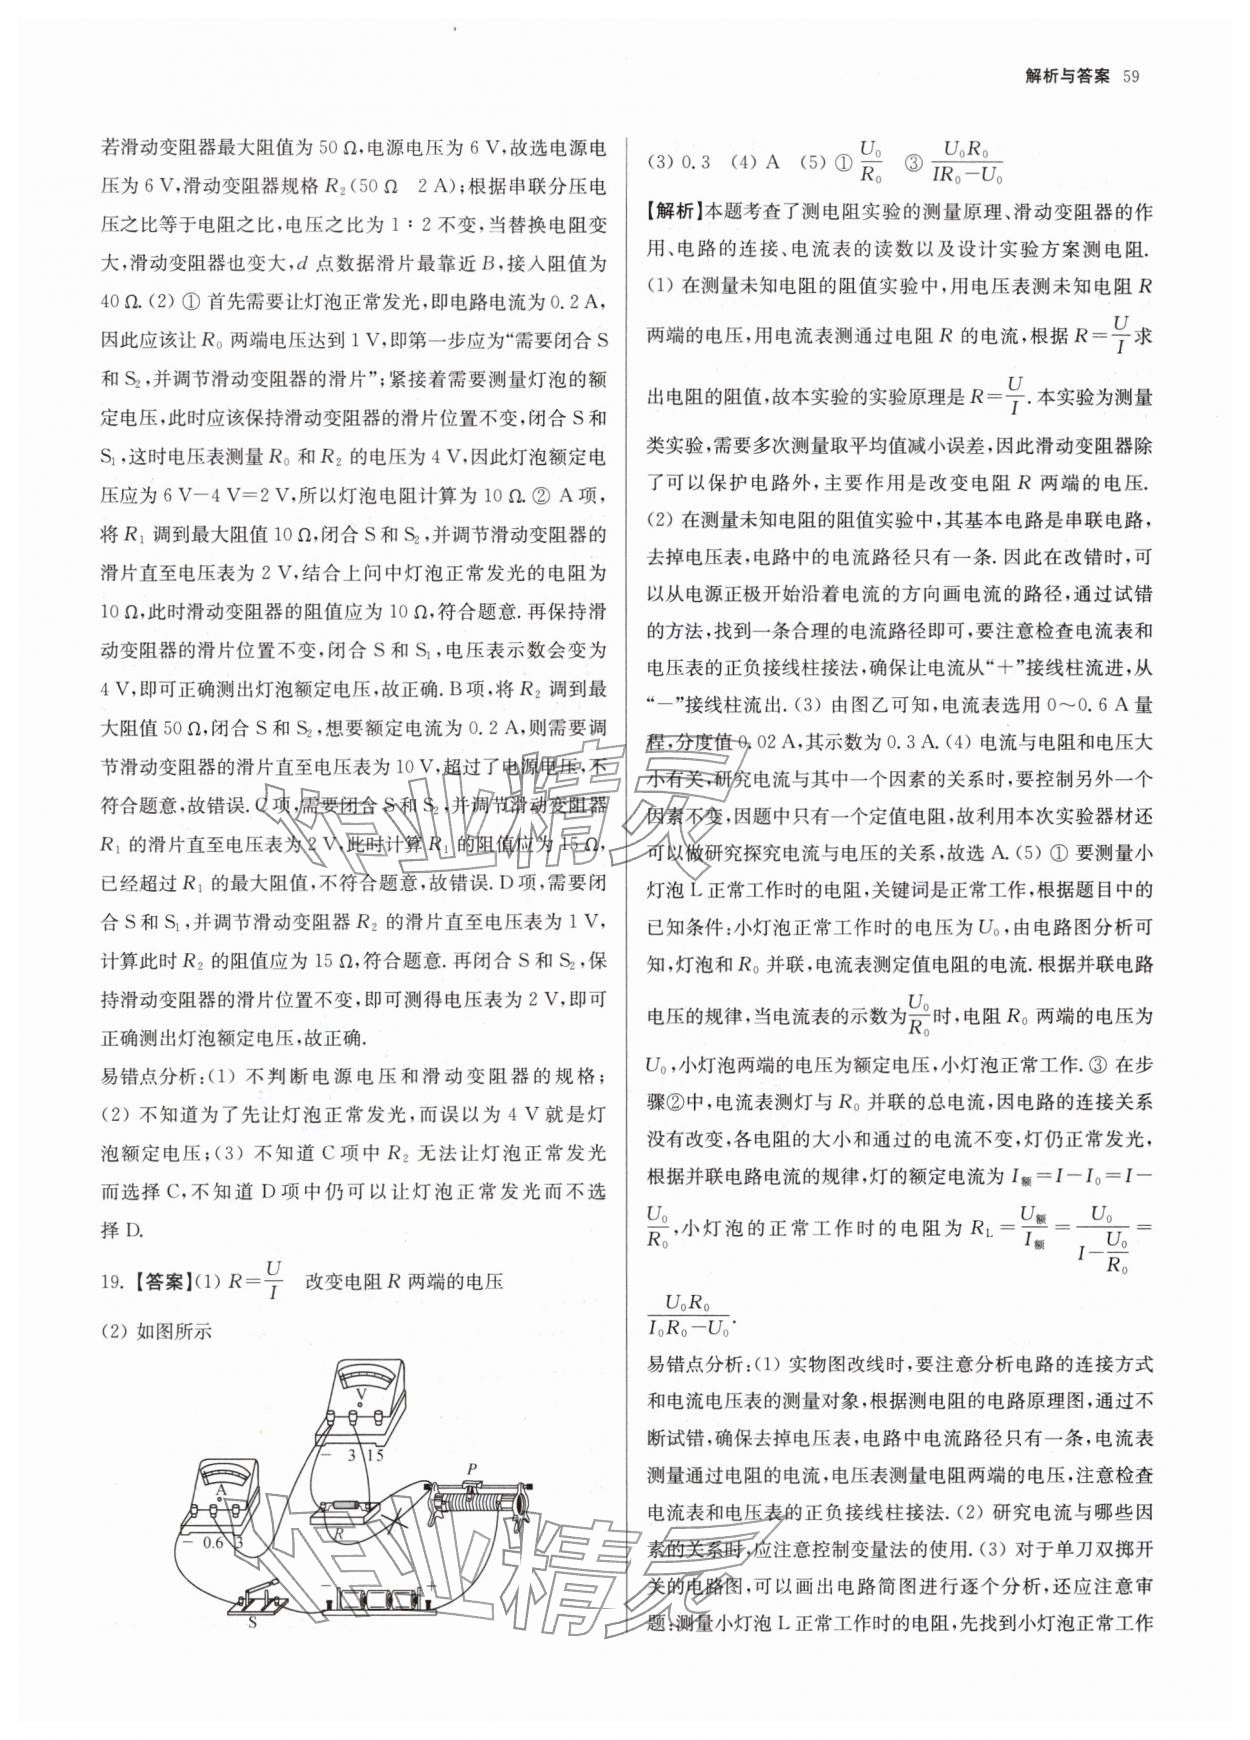 解析与答案 59
若滑动变阻器最大阻值为 50 Ω,电源电压为 6 V,故选电源电
压为 6 V,滑动变阻器规格 R₂(50 Ω 2 A);根据串联分压电
压之比等于电阻之比,电压之比为 1∶2 不变,当替换电阻变
大,滑动变阻器也变大,d 点数据滑片最靠近 B,接入阻值为
40 Ω.(2) ① 首先需要让灯泡正常发光,即电路电流为 0.2 A,
因此应该让 R₀ 两端电压达到 1 V,即第一步应为“需要闭合 S
和 S₂,并调节滑动变阻器的滑片”;紧接着需要测量灯泡的额
定电压,此时应该保持滑动变阻器的滑片位置不变,闭合 S 和
S₁,这时电压表测量 R₀ 和 R₂ 的电压为 4 V,因此灯泡额定电
压应为 6 V－4 V=2 V,所以灯泡电阻计算为 10 Ω.② A 项,
将 R₁ 调到最大阻值 10 Ω,闭合 S 和 S₂,并调节滑动变阻器的
滑片直至电压表为 2 V,结合上问中灯泡正常发光的电阻为
10 Ω,此时滑动变阻器的阻值应为 10 Ω,符合题意.再保持滑
动变阻器的滑片位置不变,闭合 S 和 S₁,电压表示数会变为
4 V,即可正确测出灯泡额定电压,故正确.B 项,将 R₂ 调到最
大阻值 50 Ω,闭合 S 和 S₂,想要额定电流为 0.2 A,则需要调
节滑动变阻器的滑片直至电压表为 10 V,超过了电源电压,不
符合题意,故错误.C 项,需要闭合 S 和 S₂,并调节滑动变阻器
R₁ 的滑片直至电压表为 2 V,此时计算 R₁ 的阻值应为 15 Ω,
已经超过 R₁ 的最大阻值,不符合题意,故错误.D 项,需要闭
合 S 和 S₁,并调节滑动变阻器 R₂ 的滑片直至电压表为 1 V,
计算此时 R₂ 的阻值应为 15 Ω,符合题意.再闭合 S 和 S₂,保
持滑动变阻器的滑片位置不变,即可测得电压表为 2 V,即可
正确测出灯泡额定电压,故正确.
易错点分析:(1) 不判断电源电压和滑动变阻器的规格;
(2) 不知道为了先让灯泡正常发光,而误以为 4 V 就是灯
泡额定电压;(3) 不知道 C 项中 R₂ 无法让灯泡正常发光
而选择 C,不知道 D 项中仍可以让灯泡正常发光而不选
择 D.
19.【答案】(1) R=U/I 改变电阻 R 两端的电压
(2) 如图所示
V
－ 3 15
A
－ 0.6 3
P
R
S
－ ＋
(3) 0.3 (4) A (5) ① U₀/R₀ ③ U₀R₀/(IR₀－U₀)
【解析】本题考查了测电阻实验的测量原理、滑动变阻器的作
用、电路的连接、电流表的读数以及设计实验方案测电阻.
(1) 在测量未知电阻的阻值实验中,用电压表测未知电阻 R
两端的电压,用电流表测通过电阻 R 的电流,根据 R=U/I求
出电阻的阻值,故本实验的实验原理是 R=U/I.本实验为测量
类实验,需要多次测量取平均值减小误差,因此滑动变阻器除
了可以保护电路外,主要作用是改变电阻 R 两端的电压.
(2) 在测量未知电阻的阻值实验中,其基本电路是串联电路,
去掉电压表,电路中的电流路径只有一条.因此在改错时,可
以从电源正极开始沿着电流的方向画电流的路径,通过试错
的方法,找到一条合理的电流路径即可,要注意检查电流表和
电压表的正负接线柱接法,确保让电流从“＋”接线柱流进,从
“－”接线柱流出.(3) 由图乙可知,电流表选用 0～0.6 A 量
程,分度值 0.02 A,其示数为 0.3 A.(4) 电流与电阻和电压大
小有关,研究电流与其中一个因素的关系时,要控制另外一个
因素不变,因题中只有一个定值电阻,故利用本次实验器材还
可以做研究探究电流与电压的关系,故选 A.(5) ① 要测量小
灯泡 L 正常工作时的电阻,关键词是正常工作,根据题目中的
已知条件:小灯泡正常工作时的电压为 U₀,由电路图分析可
知,灯泡和 R₀ 并联,电流表测定值电阻的电流.根据并联电路
电压的规律,当电流表的示数为U₀/R₀时,电阻 R₀ 两端的电压为
U₀,小灯泡两端的电压为额定电压,小灯泡正常工作.③ 在步
骤②中,电流表测灯与 R₀ 并联的总电流,因电路的连接关系
没有改变,各电阻的大小和通过的电流不变,灯仍正常发光,
根据并联电路电流的规律,灯的额定电流为 I额=I－I₀=I－
U₀/R₀,小灯泡的正常工作时的电阻为 R_L=U额/I额=U₀/(I－U₀/R₀)=
U₀R₀/(I₀R₀－U₀).
易错点分析:(1) 实物图改线时,要注意分析电路的连接方式
和电流电压表的测量对象,根据测电阻的电路原理图,通过不
断试错,确保去掉电压表,电路中电流路径只有一条,电流表
测量通过电阻的电流,电压表测量电阻两端的电压,注意检查
电流表和电压表的正负接线柱接法.(2) 研究电流与哪些因
素的关系时,应注意控制变量法的使用.(3) 对于单刀双掷开
关的电路图,可以画出电路简图进行逐个分析,还应注意审
题:测量小灯泡 L 正常工作时的电阻,先找到小灯泡正常工作
作业精灵
作业精灵